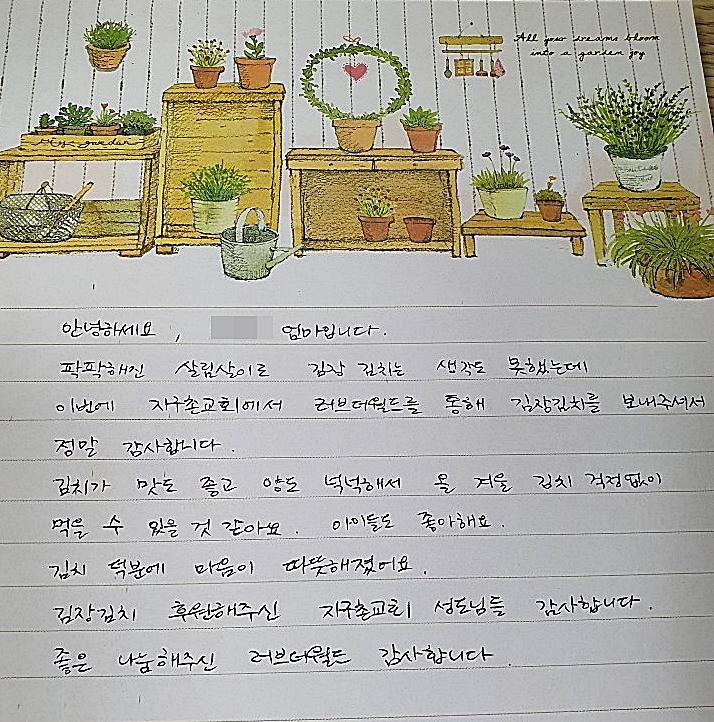 All your dreams bloom
into a garden joy
My garden
안녕하세요, 엄마입니다.
팍팍해진 살림살이로 김장 김치는 생각도 못했는데
이번에 지구촌교회에서 러브더월드를 통해 김장김치를 보내주셔서
정말 감사합니다.
김치가 맛도 좋고 양도 넉넉해서 올 겨울 김치 걱정없이
먹을 수 있을 것 같아요. 아이들도 좋아해요.
김치 덕분에 마음이 따뜻해졌어요.
김장김치 후원해주신 지구촌교회 성도님들 감사합니다.
좋은 나눔해주신 러브더월드 감사합니다.